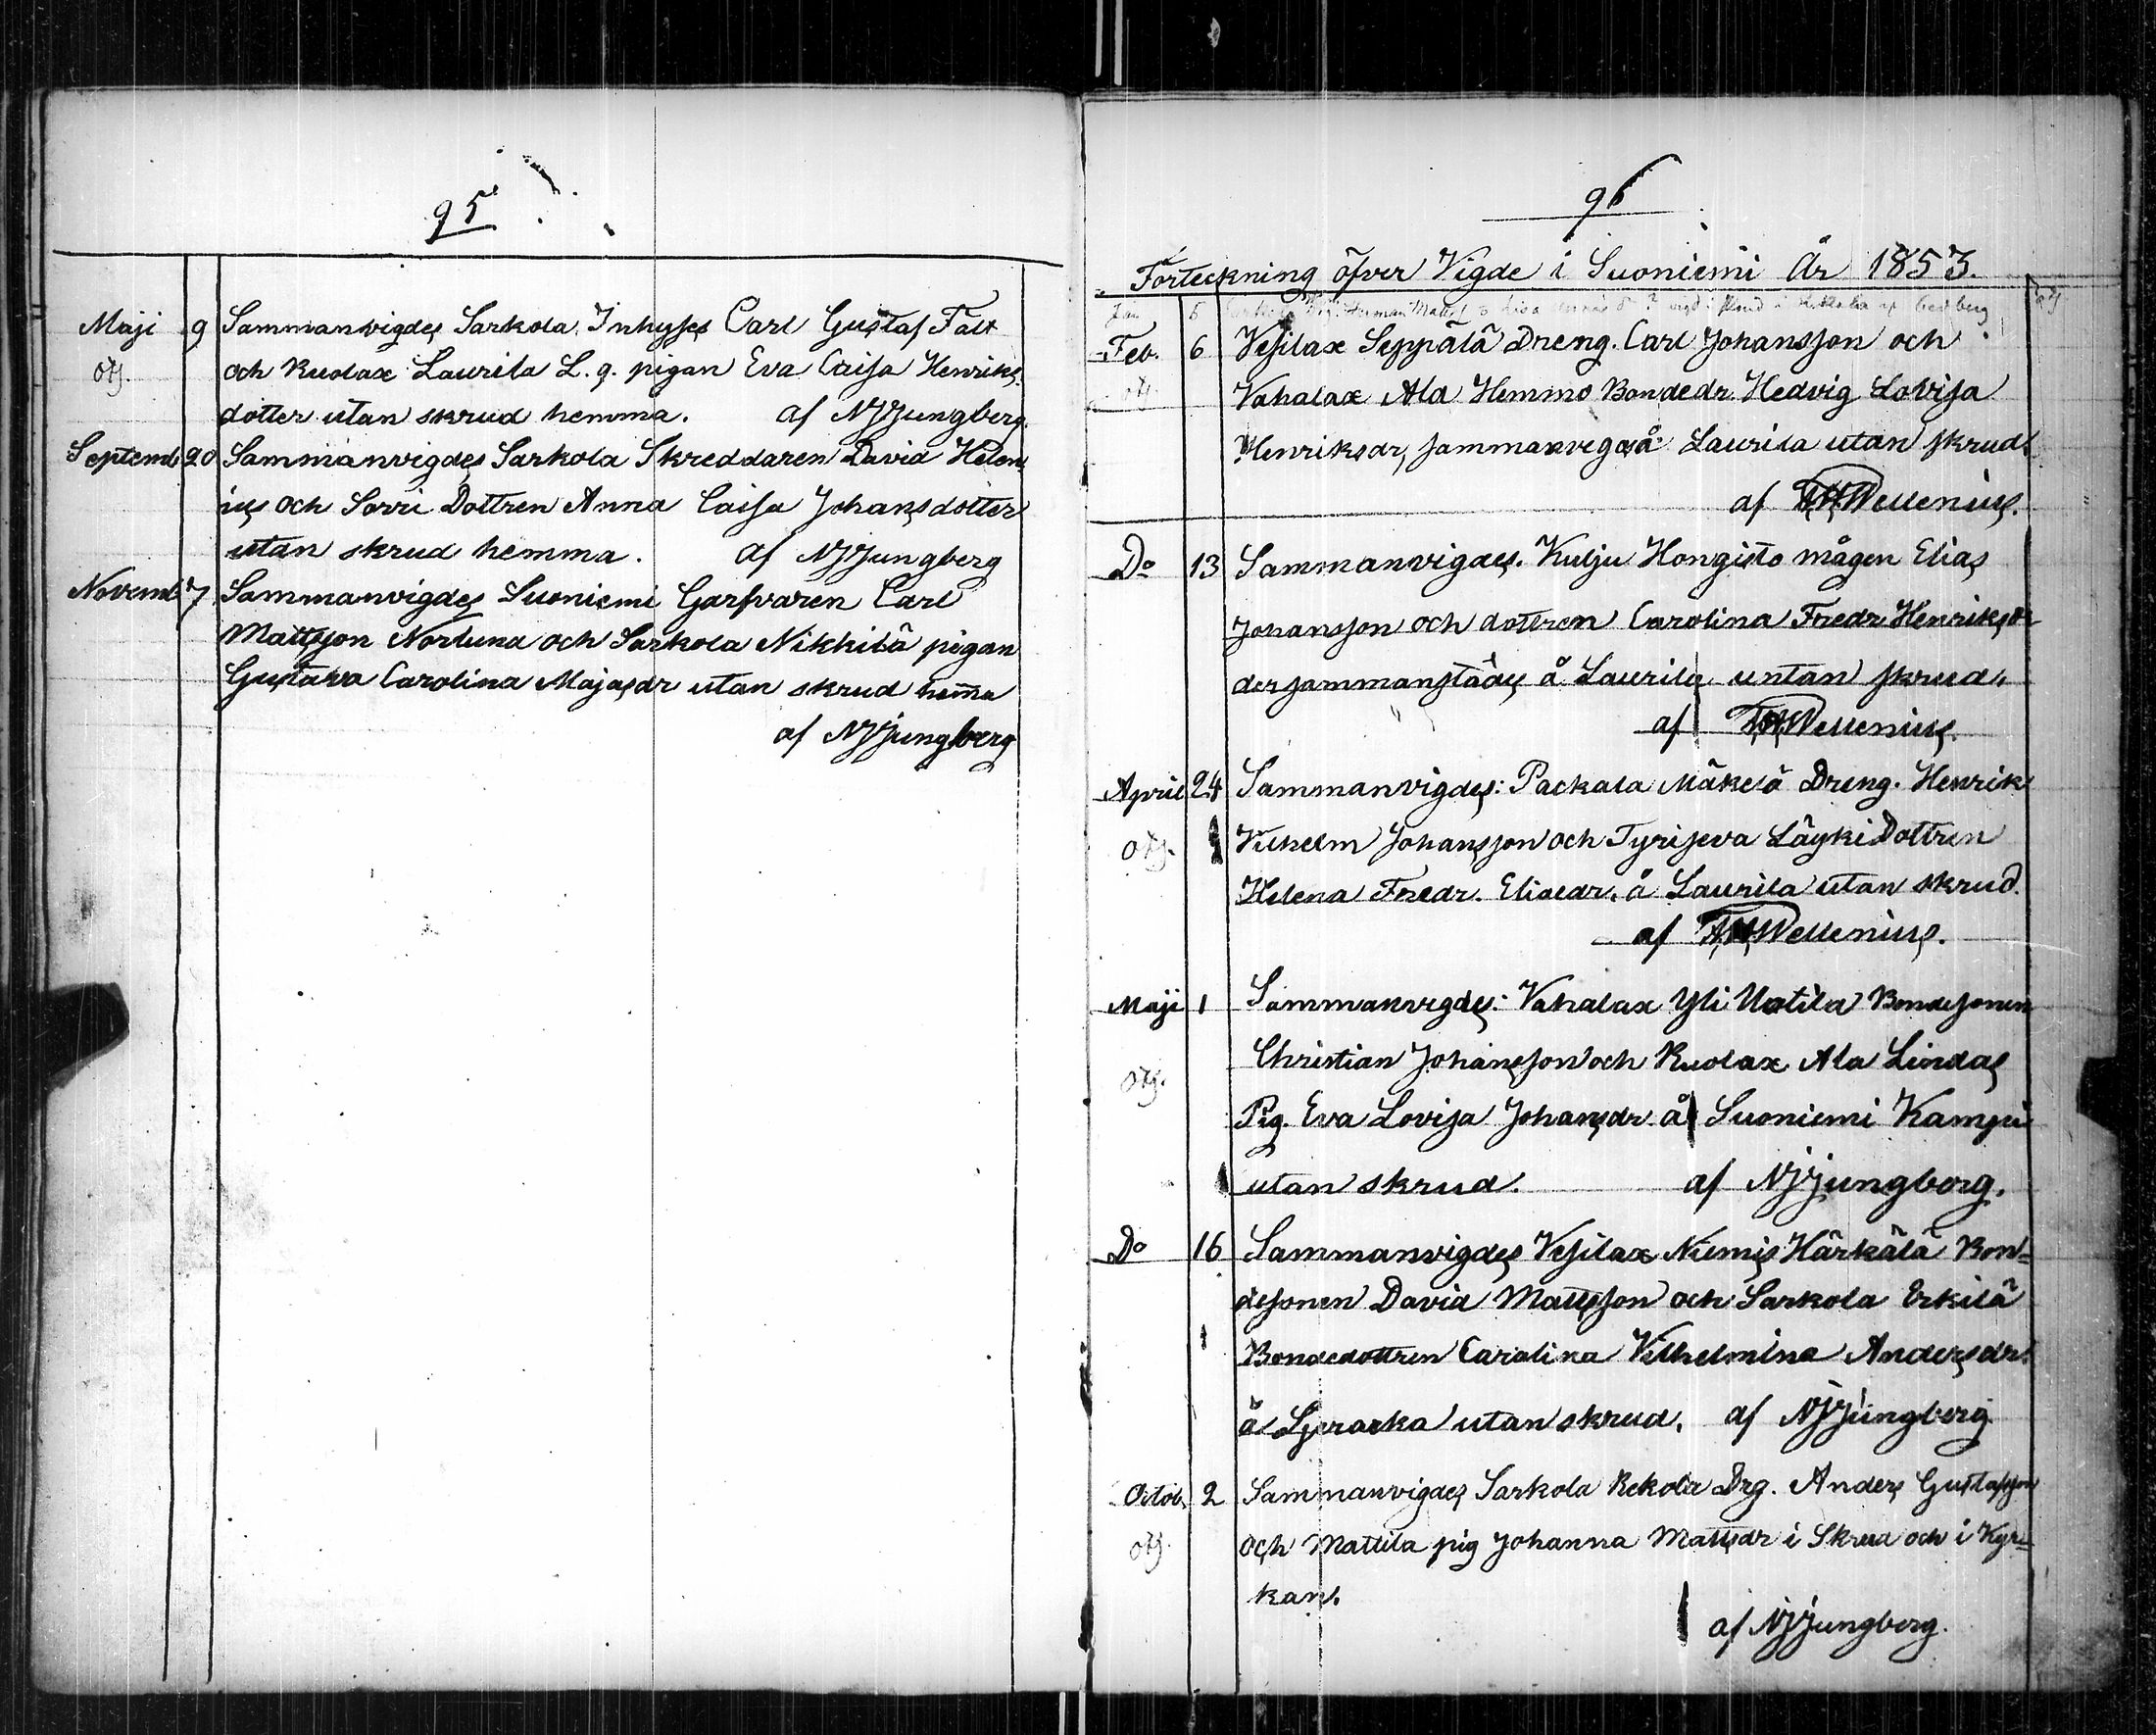 95
Maji 9 Sammanvigdes Sarkola Inhyses Carl Gustaf Fält
otj. och Kuolax Laurila L. g. pigan Eva Caisa Henriks
dotter utan skrud hemma. af NJjungberg.
Septemb 20 Sammanvigdes Sarkola Skreddaren David Helen
ius och Sorri Dottren Anna Caisa Johansdotter
utan skrud hemma. af NJjungberg
Novemb 7 Sammanvigdes Suoniemi Garfvaren Carl
Mattsson Norlund och Sarkola Nikkilä pigan
Gustava Carolina Majasdr utan skrud hema
af NJjungberg
96
Förteckning öfver Vigde i Suoniemi År 1853.
Jan 5 Herman Matts Lisa
Feb. 6 Vesilax Seppälä Dreng. Carl Johansson och
otj. Vahalax Ala Hemmo Bondedr. Hedvig Lovisa
Henriksdr, sammanvigd å Laurila utan skrud.
af Wellenius.
Do 13 Sammanvigdes. Kulju Hongisto mågen Elias
Johansson och dottren Carolina Fredr. Henriksdr
dersammanstädes å Laurila untan skrud.
af Wellenius.
April 24 Sammanvigdes: Packala Mäkelä Dreng. Henrik
otj. Vilhelm Johansson och Tyriseva Läyki Dottren
Helena Fredr. Eliaedr. å Laurila utan skrud.
af Wellenius.
Maji 1 Sammanvigdes: Vahalax Yli Uotila Bondesonen
otj. Christian Johansson och Kuolax Ala Lindas
Pig. Eva Lovisa Johansdr å Suoniemi Kamppi
utan skrud. af NJjungberg.
Do 16 Sammanvigdes Vesilax Niemis Härkälä Bon-
desonen David Mattsson och Sarkola Erkilä
Bondedottren Carolina Vilhelmina Andersdr.
å utan skrud. af NJjungberg
Octob. 2 Sammanvigdes Sarkola Rekola Drg. Anders Gustafsson
otj. och Mattila pig Johanna Mattsdr i Skrud och i Kyr-
kan.
af NJjungberg.